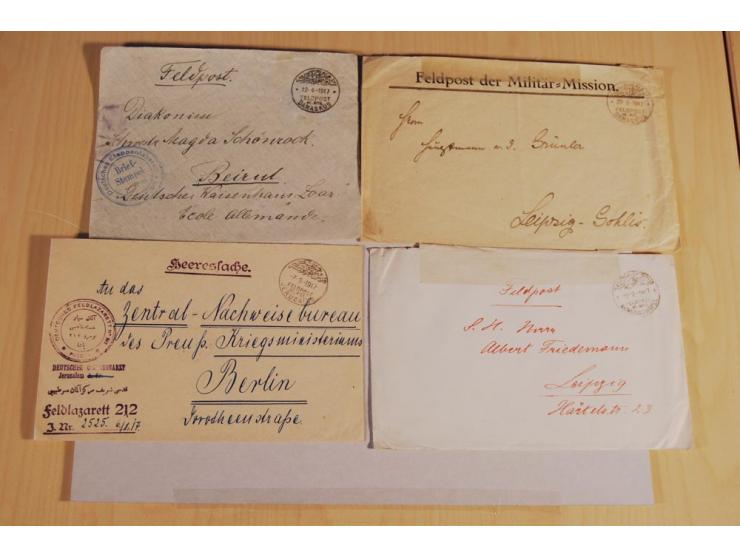 Feldpost.
12·6·1917
FELDPOST
DAMASKUS
Diakonin
Magda Schönrock.
Brief-
Stempel
Beirut
Deutsches Kaisenhaus
Ecole Allemande.
Feldpost der Militär=Mission.
FELDPOST
DAMASKUS
Herrn
Hauptmann a. D. Grimla
Leipzig-Gohlis.
Heeressache.
1917
FELDPOST
An das
Zentral-Nachweisebureau
des Preuß. Kriegsministeriums
Berlin
Dorotheenstraße.
DEUTSCHES FELDLAZARETT
DEUTSCHER
Jerusalem
Feldlazarett 212
J. Nr. 2525.
Feldpost
S. H. Herrn
Albert Friedemann
Leipzig
Härtelstr. 23